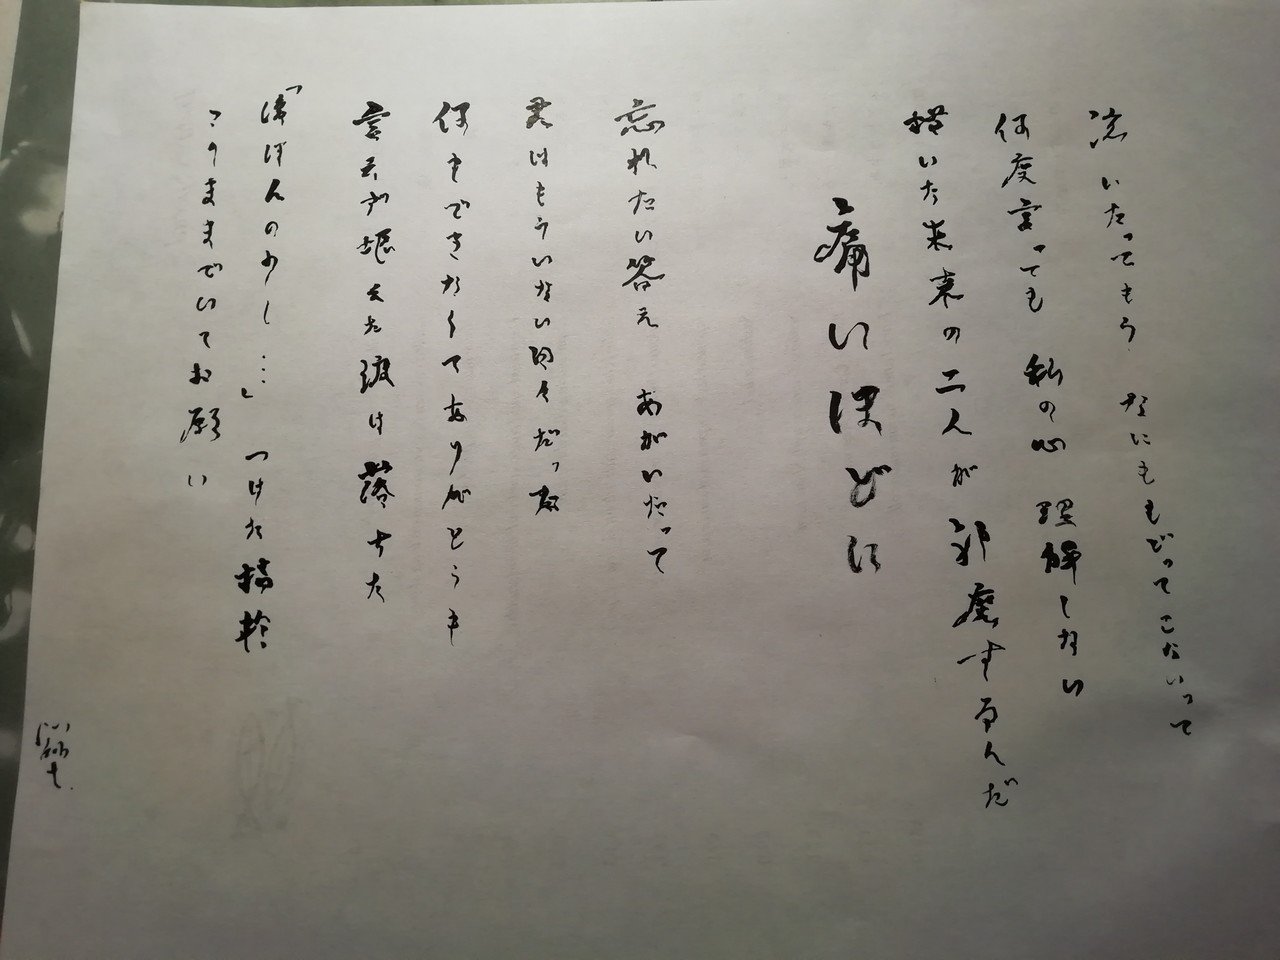 泣いたってもう なにももどってこないって
何度言っても 私の心 理解しない
描いた未来の二人が邪魔するんだ
痛いほどに
忘れたい答え あがいたって
君はもういない日々だった
何もできなくてありがとうも
言えず堪えた涙は落ちた
「後ほんの少し…」 つけた指輪
このままでいてお願い